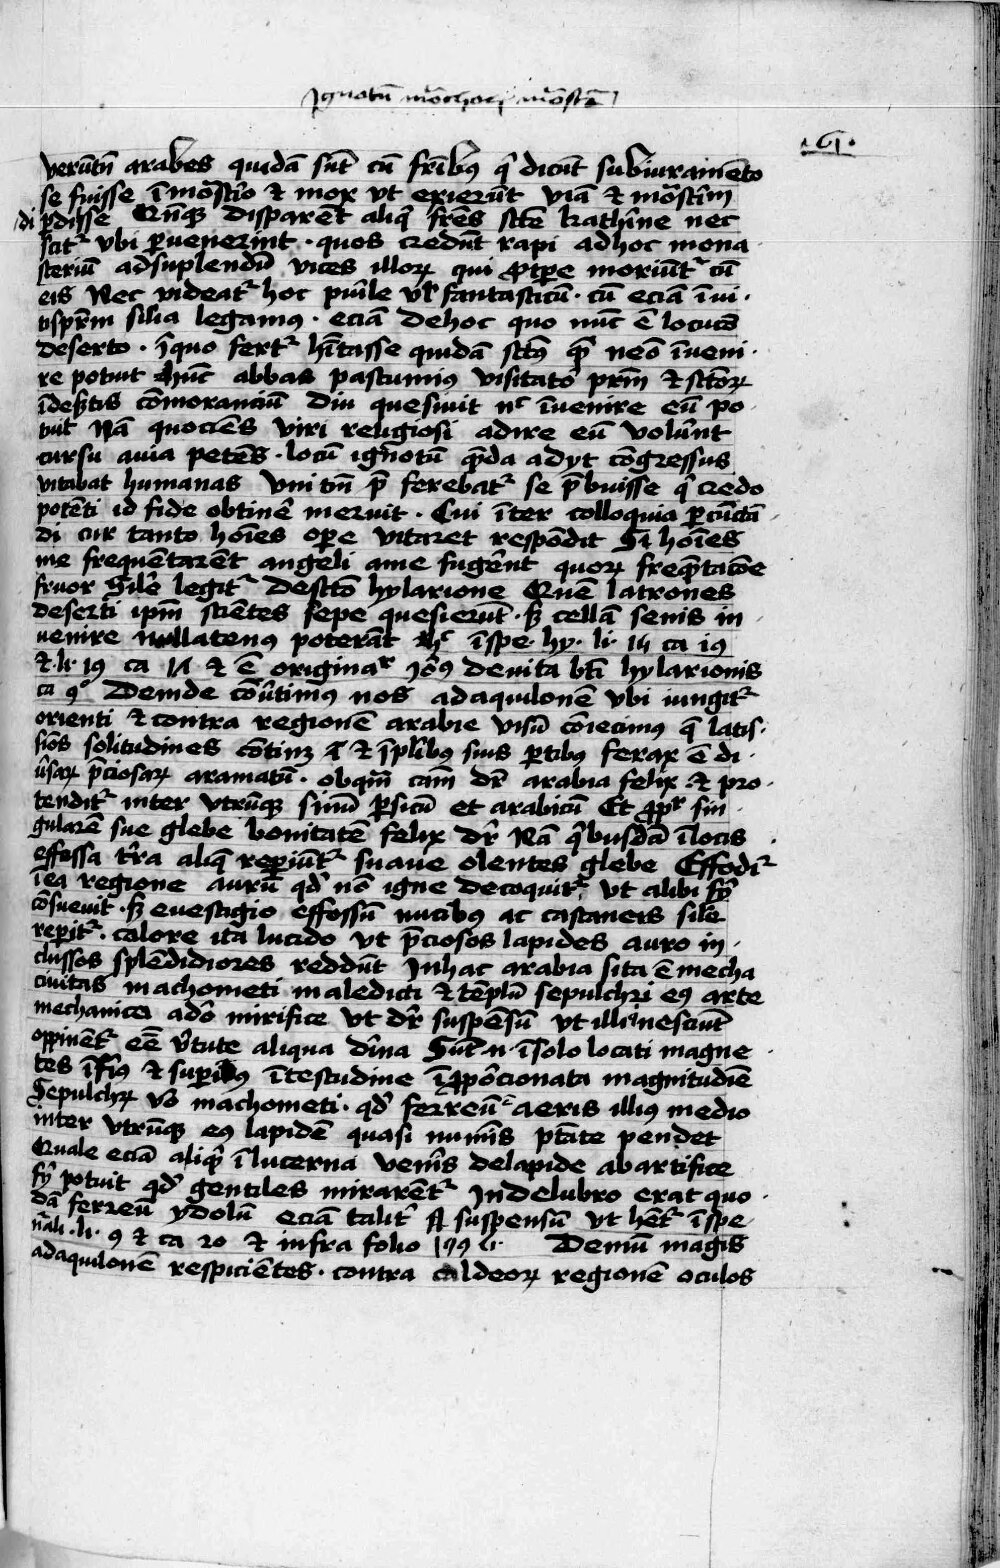 Ignotū mōchoꝝ mōstꝫ
.G.
verūtn̄ arabes quidā sūt cū fr̄ibꝰ qͥ dicūt sub iuramēto
se fuisse ī mōstīo et mox vt exierūt viā et mōstīm
di ꝑdisse Qn̄qꝫ disparēt aliqͥ frēs sctē kathīne nec
scitᷣ vbi ꝑuenerint · quos credūt rapi ad hoc mona
steriū ad suplendū vices illoꝝ qui ꝓpe moriūtᷣ cū
eis Nec videatᷣ hoc puīle vl̓ fantasticū · cū eciā ī vi ·
tis pr̄m silia legamꝰ · eciā de hoc quo nūc ē locutꝰ
deserto · ī quo fertᷣ hītasse quidā sctꝰ qͣ neō īueni ·
re potuit hūc abbas pastumiꝰ visitatō prm̄ et sctōꝝ
ī deẜtis cōmoranciū diu quesiuit nͨ īuenire eū po
tuit Nā quociēs viri religiosi adire eū volūnt
cursu auia petēs · locū ignotū qͣdā adyt cōgressus
vitabat humanas Vni tn̄ p̄ ferebatᷣ se p̄buisse qͥ credo
potēti id fide obtinē meruit · Cui īter colloquia ꝑcūctā
di cur tanto hoīes oꝑe vitaret respōdit Si hoīes
me frequētarēt angeli a me fugēnt quoꝝ freqͣtacōe
fruor Sil̓e legitᷣ de sctō hylarione Quē latrones
deserti ipm̄ sciētes sepe quesierūt · sꝫ cellā senis in
uenire nullatenꝰ poterāt hͨ ī spe · hy · li · 14 ca 19
et · li · 19 ca 14 et ē originaᷣ iōꝰ de vita bt̄i hylarionis
ca 9º Deinde cōūtimus nos ad aquilonē vbi iungitᷣ
orienti et contra regionē arabie visū cōiecimus q̄ latis ·
sīos solitudines cōtinꝫ et ī pl̓ibꝰ suis ꝑtibus ferax ē di ·
ūsaꝝ p̄ciosaꝝ aramatū · ob qm̄ cām dr̄ arabia felix et pro ·
tenditᷣ inter vtrūqꝫ sinū ꝑsicū et arabicū Et ꝓpt sin
gularē sue glebe bonitatē felix dr̄ Nā qͥbusdā ī locis
effossa tr̄ra aliqͣ reꝑiūtᷣ suaue olentes glebe Effoditᷣ
ī ea regione aurū qd̓ nō igne decoquitᷣ vt alibi fīͥ
cōsueuit · sꝫ e uestigio effossū nucibꝰ ac castaneis sil̓e
reꝑitᷣ · calore ita lucido vt p̄ciosos lapides auro in ·
clussos splēdidiores reddūt In hac arabia sita ē mecha
ciuitas machometi maledicti et tēplū sepulchri eꝰ arte
mechanica adō mirifice vt dr̄ suspēsū vt illi nesciūt
oppinētᷣ eē v̓tute aliqua dīna Sūt · n · ī solo locati magne ·
tes īfīꝰ et supīꝰ ī testudine ī ꝓporcionata magnitudīe
Sepulchꝝ vō machometi · qd̓ ferreū ē aeris illiꝰ medio
inter vtrūqꝫ eꝰ lapidē quasi numīs ptāte pendet
Quale eciā aliqͥ ī lucerna venīs de lapide ab artifice
fīͥ potuit qd̓ gentiles mirarētᷣ In delubro erat quo ·
dā ferreū ydolū eciā talitᷣ suspensū vt hētᷣ ī spe
nāli · li · 9 et ca 20 et infra folio 199 Demū magis
ad aquilonē respiciētes · contra caldeoꝝ regionē oculos